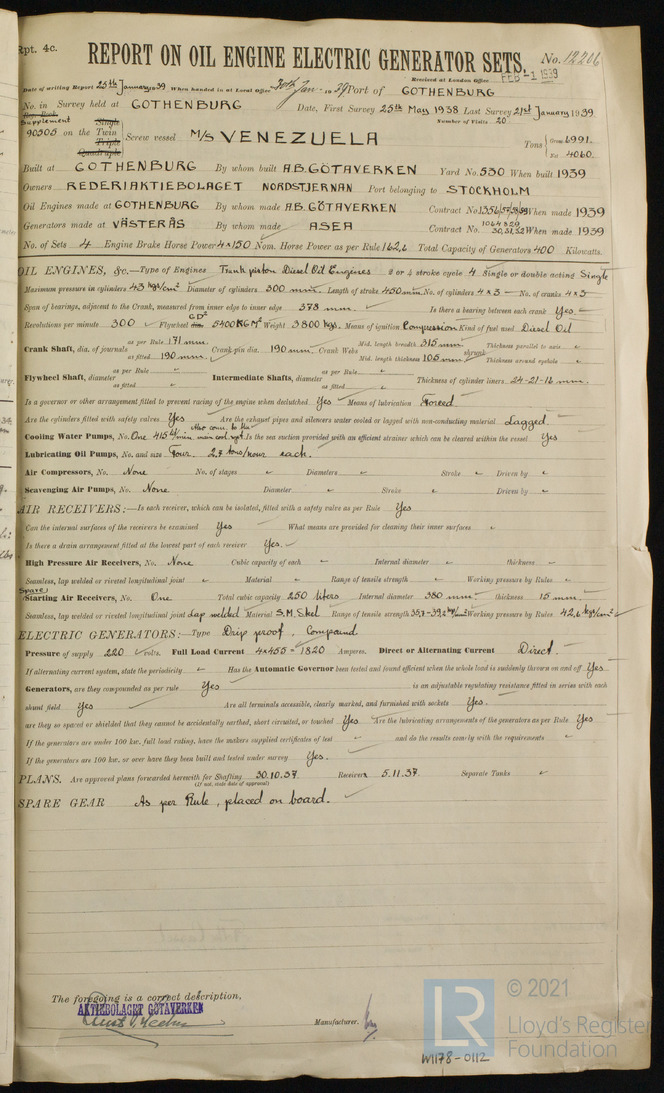 Rpt. 4c.
REPORT ON OIL ENGINE ELECTRIC GENERATOR SETS.
No. 12206
Received at London Office FEB -1 1939
Date of writing Report 25th January 1939 When handed in at Local Office 30th Jan. 1939 Port of GOTHENBURG
No. in Survey held at GOTHENBURG Date, First Survey 25th May 1938 Last Survey 21st January 1939
Reg. Book. Number of Visits 20
Supplement Single
90305 on the Twin Screw vessel M/S VENEZUELA Tons Gross 6991.
Triple
Quadruple Net 4060.
Built at GOTHENBURG By whom built A.B. GÖTAVERKEN Yard No. 530 When built 1939
Owners REDERIAKTIEBOLAGET NORDSTJERNAN Port belonging to STOCKHOLM
Oil Engines made at GOTHENBURG By whom made A.B. GÖTAVERKEN Contract No. When made 1939
Generators made at VÄSTERÅS By whom made ASEA Contract No. 1064329 30,31,32 When made 1939
No. of Sets 4 Engine Brake Horse Power 4×150 Nom. Horse Power as per Rule 162,6 Total Capacity of Generators 400 Kilowatts.
OIL ENGINES, &c.—Type of Engines Trunk piston Diesel Oil Engines 2 or 4 stroke cycle 4 Single or double acting Single
Maximum pressure in cylinders 43 kgs/cm² Diameter of cylinders 300 mm. Length of stroke 450 mm. No. of cylinders 4 × 3 — No. of cranks 4 × 3
Span of bearings, adjacent to the Crank, measured from inner edge to inner edge 378 mm. Is there a bearing between each crank Yes.
Revolutions per minute 300 Flywheel dia. GD² 5400 KGM² Weight 3800 kgs. Means of ignition Compression Kind of fuel used Diesel Oil
Crank Shaft, dia. of journals as per Rule 171 mm. as fitted 190 mm. Crank pin dia. 190 mm. Crank Webs Mid. length breadth 315 mm. Thickness parallel to axis
Mid. length thickness 105 mm. shrunk Thickness around eyehole
Flywheel Shaft, diameter as per Rule as fitted Intermediate Shafts, diameter as per Rule as fitted Thickness of cylinder liners 24-21-16 mm.
Is a governor or other arrangement fitted to prevent racing of the engine when declutched Yes Means of lubrication Forced.
Are the cylinders fitted with safety valves Yes Are the exhaust pipes and silencers water cooled or lagged with non-conducting material Lagged.
Cooling Water Pumps, No. One Is the sea suction provided with an efficient strainer which can be cleared within the vessel Yes
Lubricating Oil Pumps, No. and size Four. 2,7 tons/hour each.
Air Compressors, No. None No. of stages Diameters Stroke Driven by
Scavenging Air Pumps, No. None. Diameter Stroke Driven by
AIR RECEIVERS:—Is each receiver, which can be isolated, fitted with a safety valve as per Rule Yes
Can the internal surfaces of the receivers be examined Yes What means are provided for cleaning their inner surfaces
Is there a drain arrangement fitted at the lowest part of each receiver Yes.
High Pressure Air Receivers, No. None Cubic capacity of each Internal diameter thickness
Seamless, lap welded or riveted longitudinal joint Material Range of tensile strength Working pressure by Rules
(Spare)
Starting Air Receivers, No. One Total cubic capacity 250 liters Internal diameter 380 mm. thickness 15 mm.
Seamless, lap welded or riveted longitudinal joint Lap welded Material S.M. Steel Range of tensile strength Working pressure by Rules 42,6 kgs/cm²
ELECTRIC GENERATORS:—Type Drip proof, Compound
Pressure of supply 220 volts. Full Load Current 4×455 = 1820 Amperes. Direct or Alternating Current Direct.
If alternating current system, state the periodicity Has the Automatic Governor been tested and found efficient when the whole load is suddenly thrown on and off Yes
Generators, are they compounded as per rule Yes is an adjustable regulating resistance fitted in series with each
shunt field Yes Are all terminals accessible, clearly marked, and furnished with sockets Yes.
are they so spaced or shielded that they cannot be accidentally earthed, short circuited, or touched Yes Are the lubricating arrangements of the generators as per Rule Yes
If the generators are under 100 kw. full load rating, have the makers supplied certificates of test and do the results comply with the requirements
If the generators are 100 kw. or over have they been built and tested under survey Yes.
PLANS. Are approved plans forwarded herewith for Shafting 30.10.37. Receivers 5.11.37. Separate Tanks
(If not, state date of approval)
SPARE GEAR As per Rule, placed on board.
The foregoing is a correct description,
AKTIEBOLAGET GÖTAVERKEN
Manufacturer.
LR © 2021
Lloyd's Register
Foundation
W1178-0112